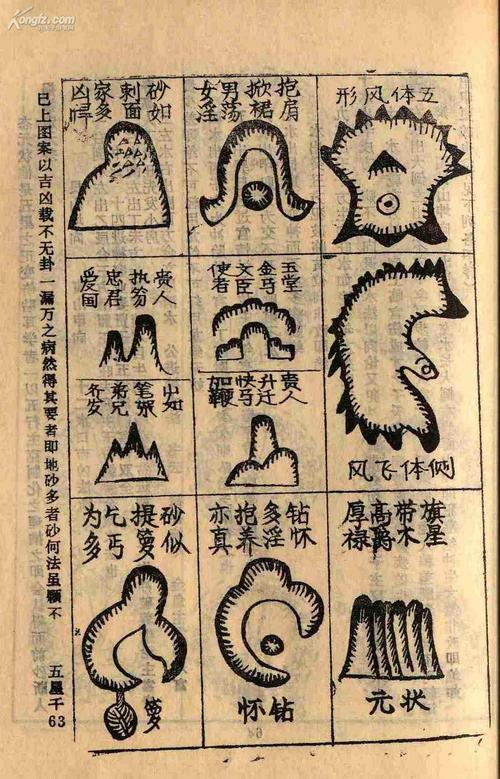 Kongfz.com
五体风形
抱肩
掀裙
男荡
女淫
砂如
刺面
家多
凶悍
侧体飞风
玉堂
金马
文臣
使者
贵人
升迁
快马
加鞭
贵人
执笏
忠君
爱国
山如
笔
弟兄
齐发
旗星
带木
高爵
厚禄
状元
钻怀
多淫
抱养
亦真
钻怀
砂似
提箩
乞丐
为多
箩
已上图案以吉凶载不无卦一漏万之病然得其要者即地砂多者砂何法虽颗不
五星千
63